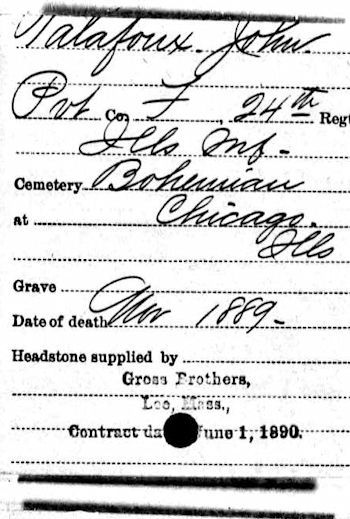 Talafoux. John.
Pvt Co. F, 24th Regt
Ills Inf-
Cemetery Bohemian
at Chicago.
Ills
Grave
Date of death Nov 1889-
Headstone supplied by
Gross Brothers,
Lee, Mass.,
Contract da June 1, 1890.